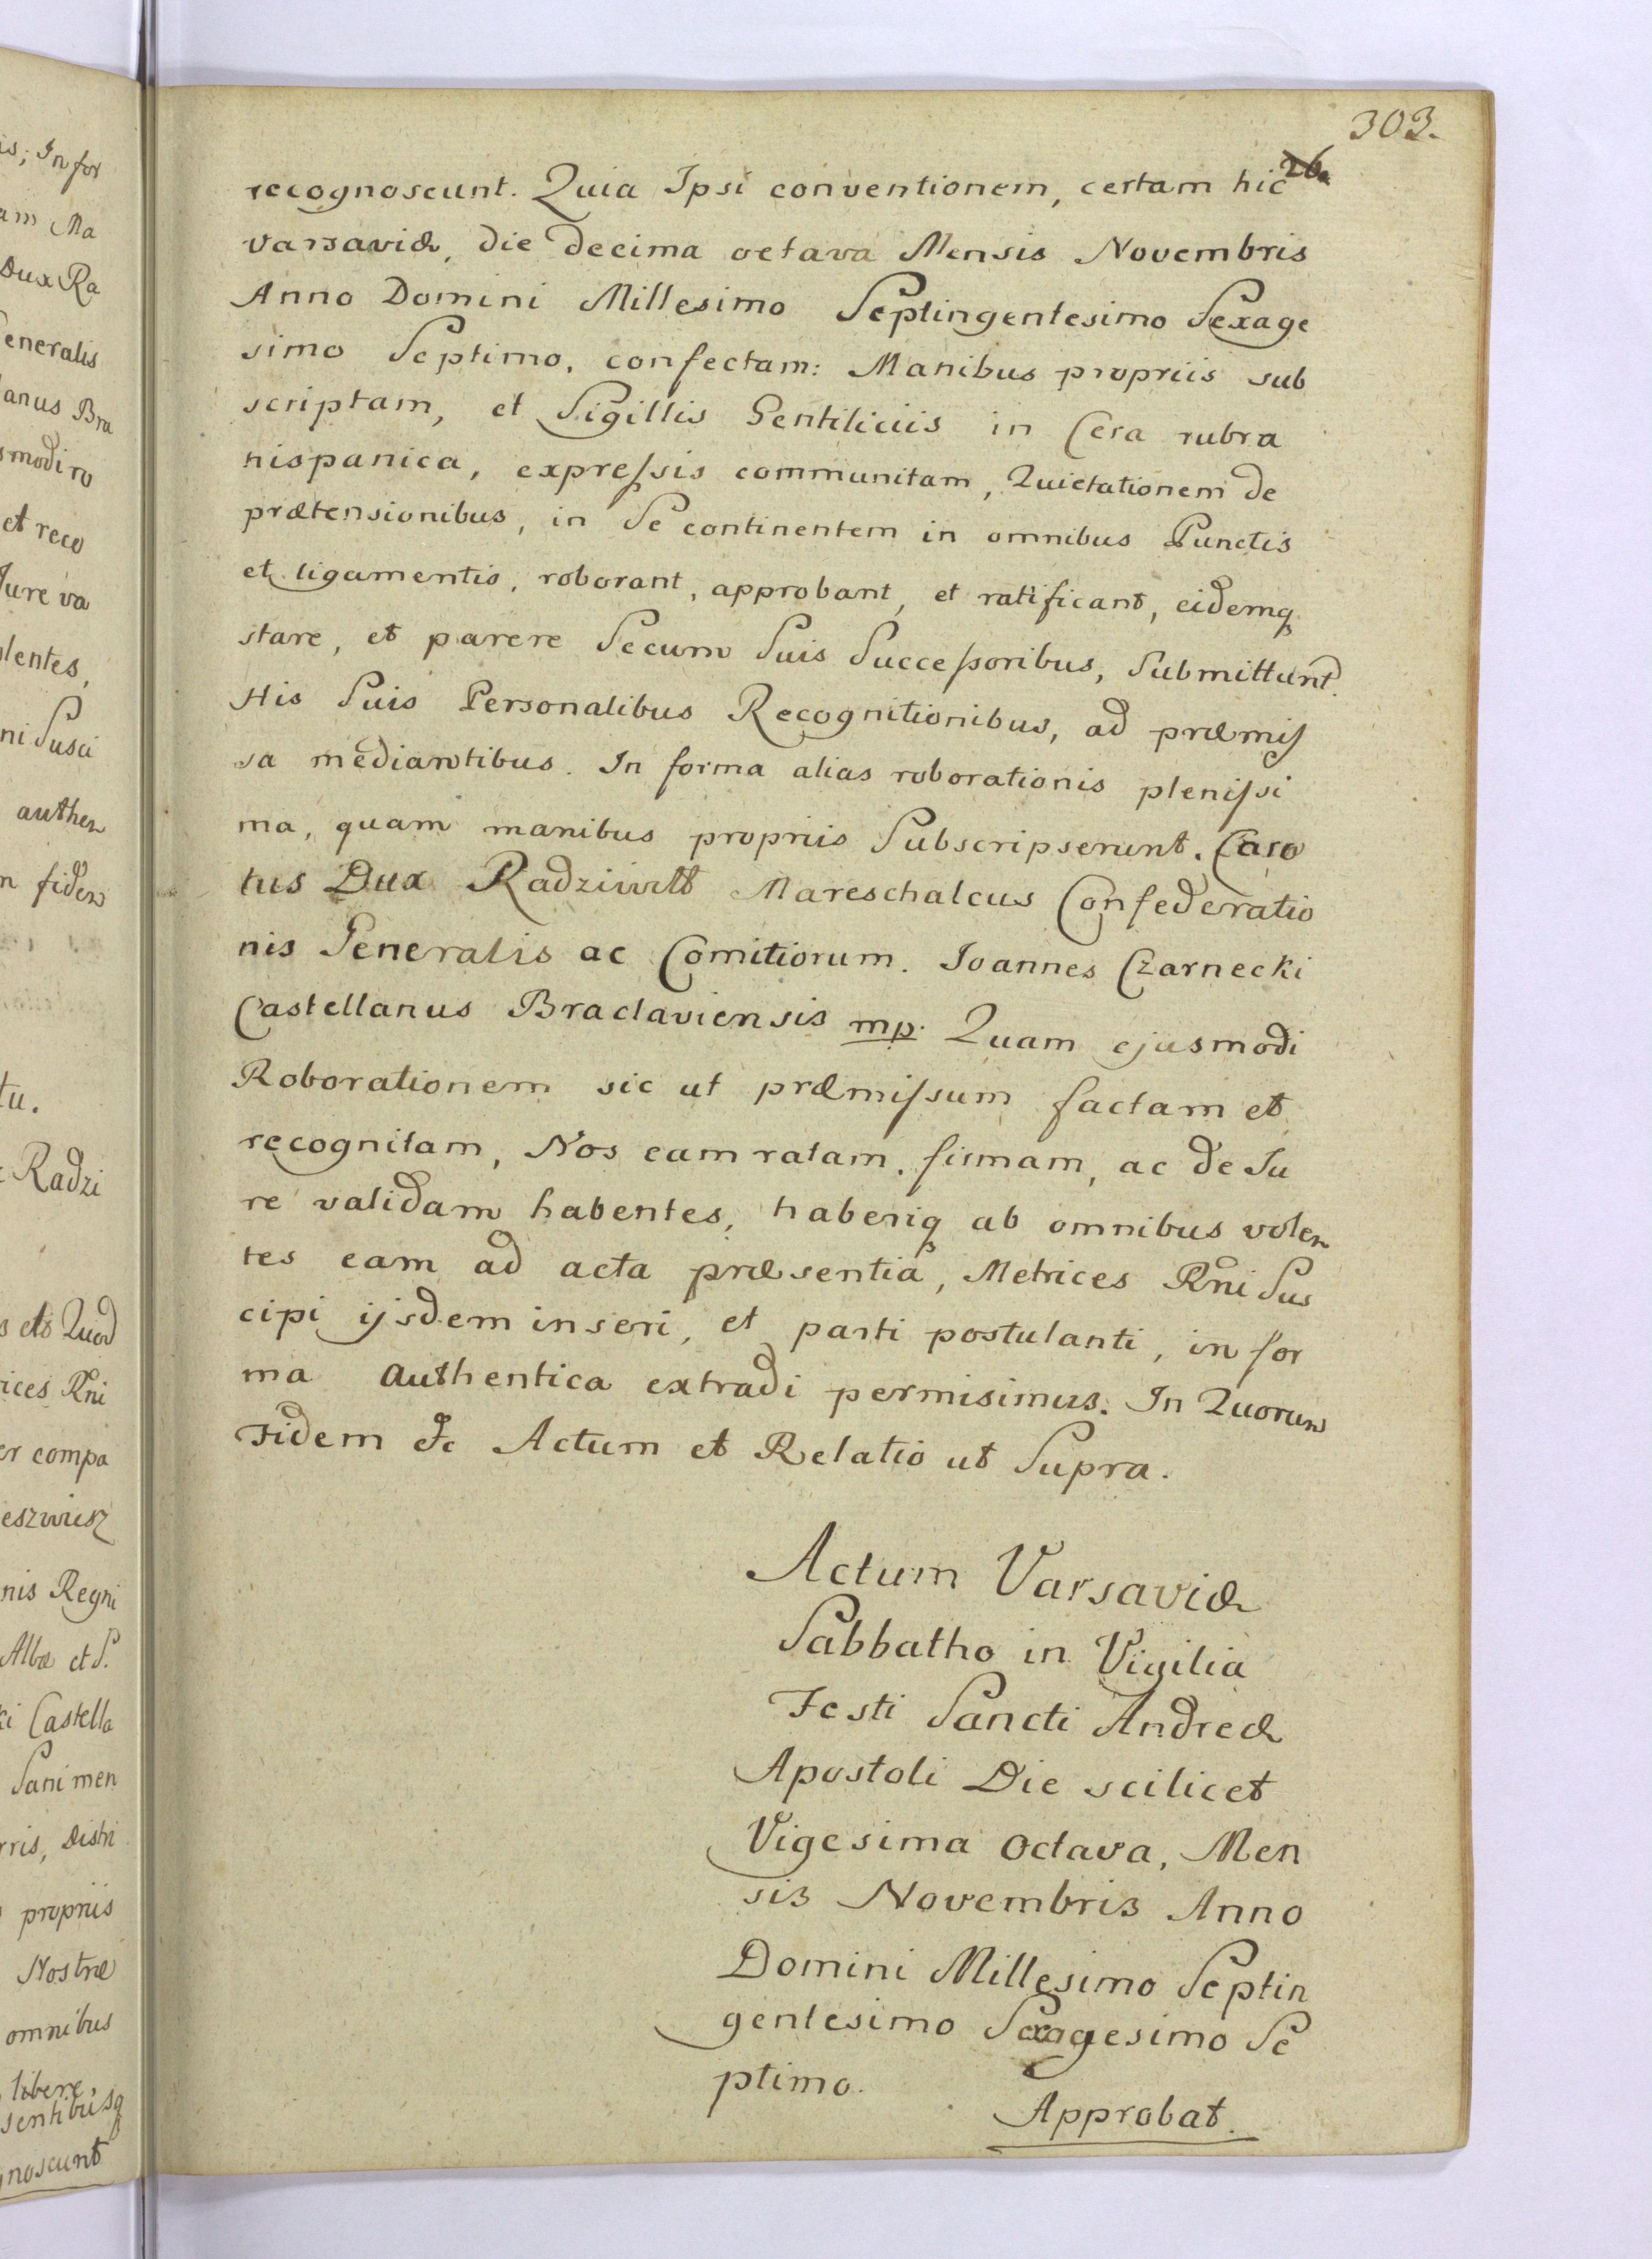 303.
26.
recognoscunt. Quia Ipsi conventionem, certam hic
Varsaviæ, die decima octava Mensis Novembris
Anno Domini Millesimo Septingentesimo Sexage
simo Septimo, confectam: Manibus propriis sub
scriptam, et Sigillis Gentiliciis in Cera rubra
hispanica, expressis communitam, Quietationem de
prætensionibus, in Se continentem in omnibus Punctis
et ligamentis, roborant, approbant, et ratificant, eidemq
stare, et parere Secum Suis Successoribus, Submittunt.
His Suis Personalibus Recognitionibus, ad præmis
sa mediantibus. In forma alias roborationis plenissi
ma, quam manibus propriis Subscripserunt. Caro
lus Dux Radziwill Mareschalcus Confederatio
nis Generalis ac Comitiorum. Ioannes Czarnecki
Castellanus Braclaviensis mp. Quam ejusmodi
Roborationem sic ut præmissum factam et
recognitam, Nos eam ratam, firmam, ac de Ju
re validam habentes, haberiq ab omnibus volen
tes eam ad acta præsentia, Metrices Rni Sus
cipi ijsdem inseri, et parti postulanti, in for
ma authentica extradi permisimus. In Quorum
Fidem &c Actum et Relatio ut Supra.
Actum Varsaviæ
Sabbatho in Vigilia
Festi Sancti Andreæ
Apostoli Die scilicet
Vigesima Octava, Men
sis Novembris Anno
Domini Millesimo Septin
gentesimo Sexagesimo Se
ptimo.
Approbat.
is; In for
am Ma
Dux Ra
Generalis
anus Bra
smodi ro
et reco
Jure va
lentes,
ni Susci
authen
m fidem
tu.
Radzi
Quod
ices Rni
er compa
eszwisz
nis Regni
Albæ et S.
ki Castella
Sani men
rris, Distri
propriis
Nostræ
omnibus
libere,
sentibusq
gnoscunt